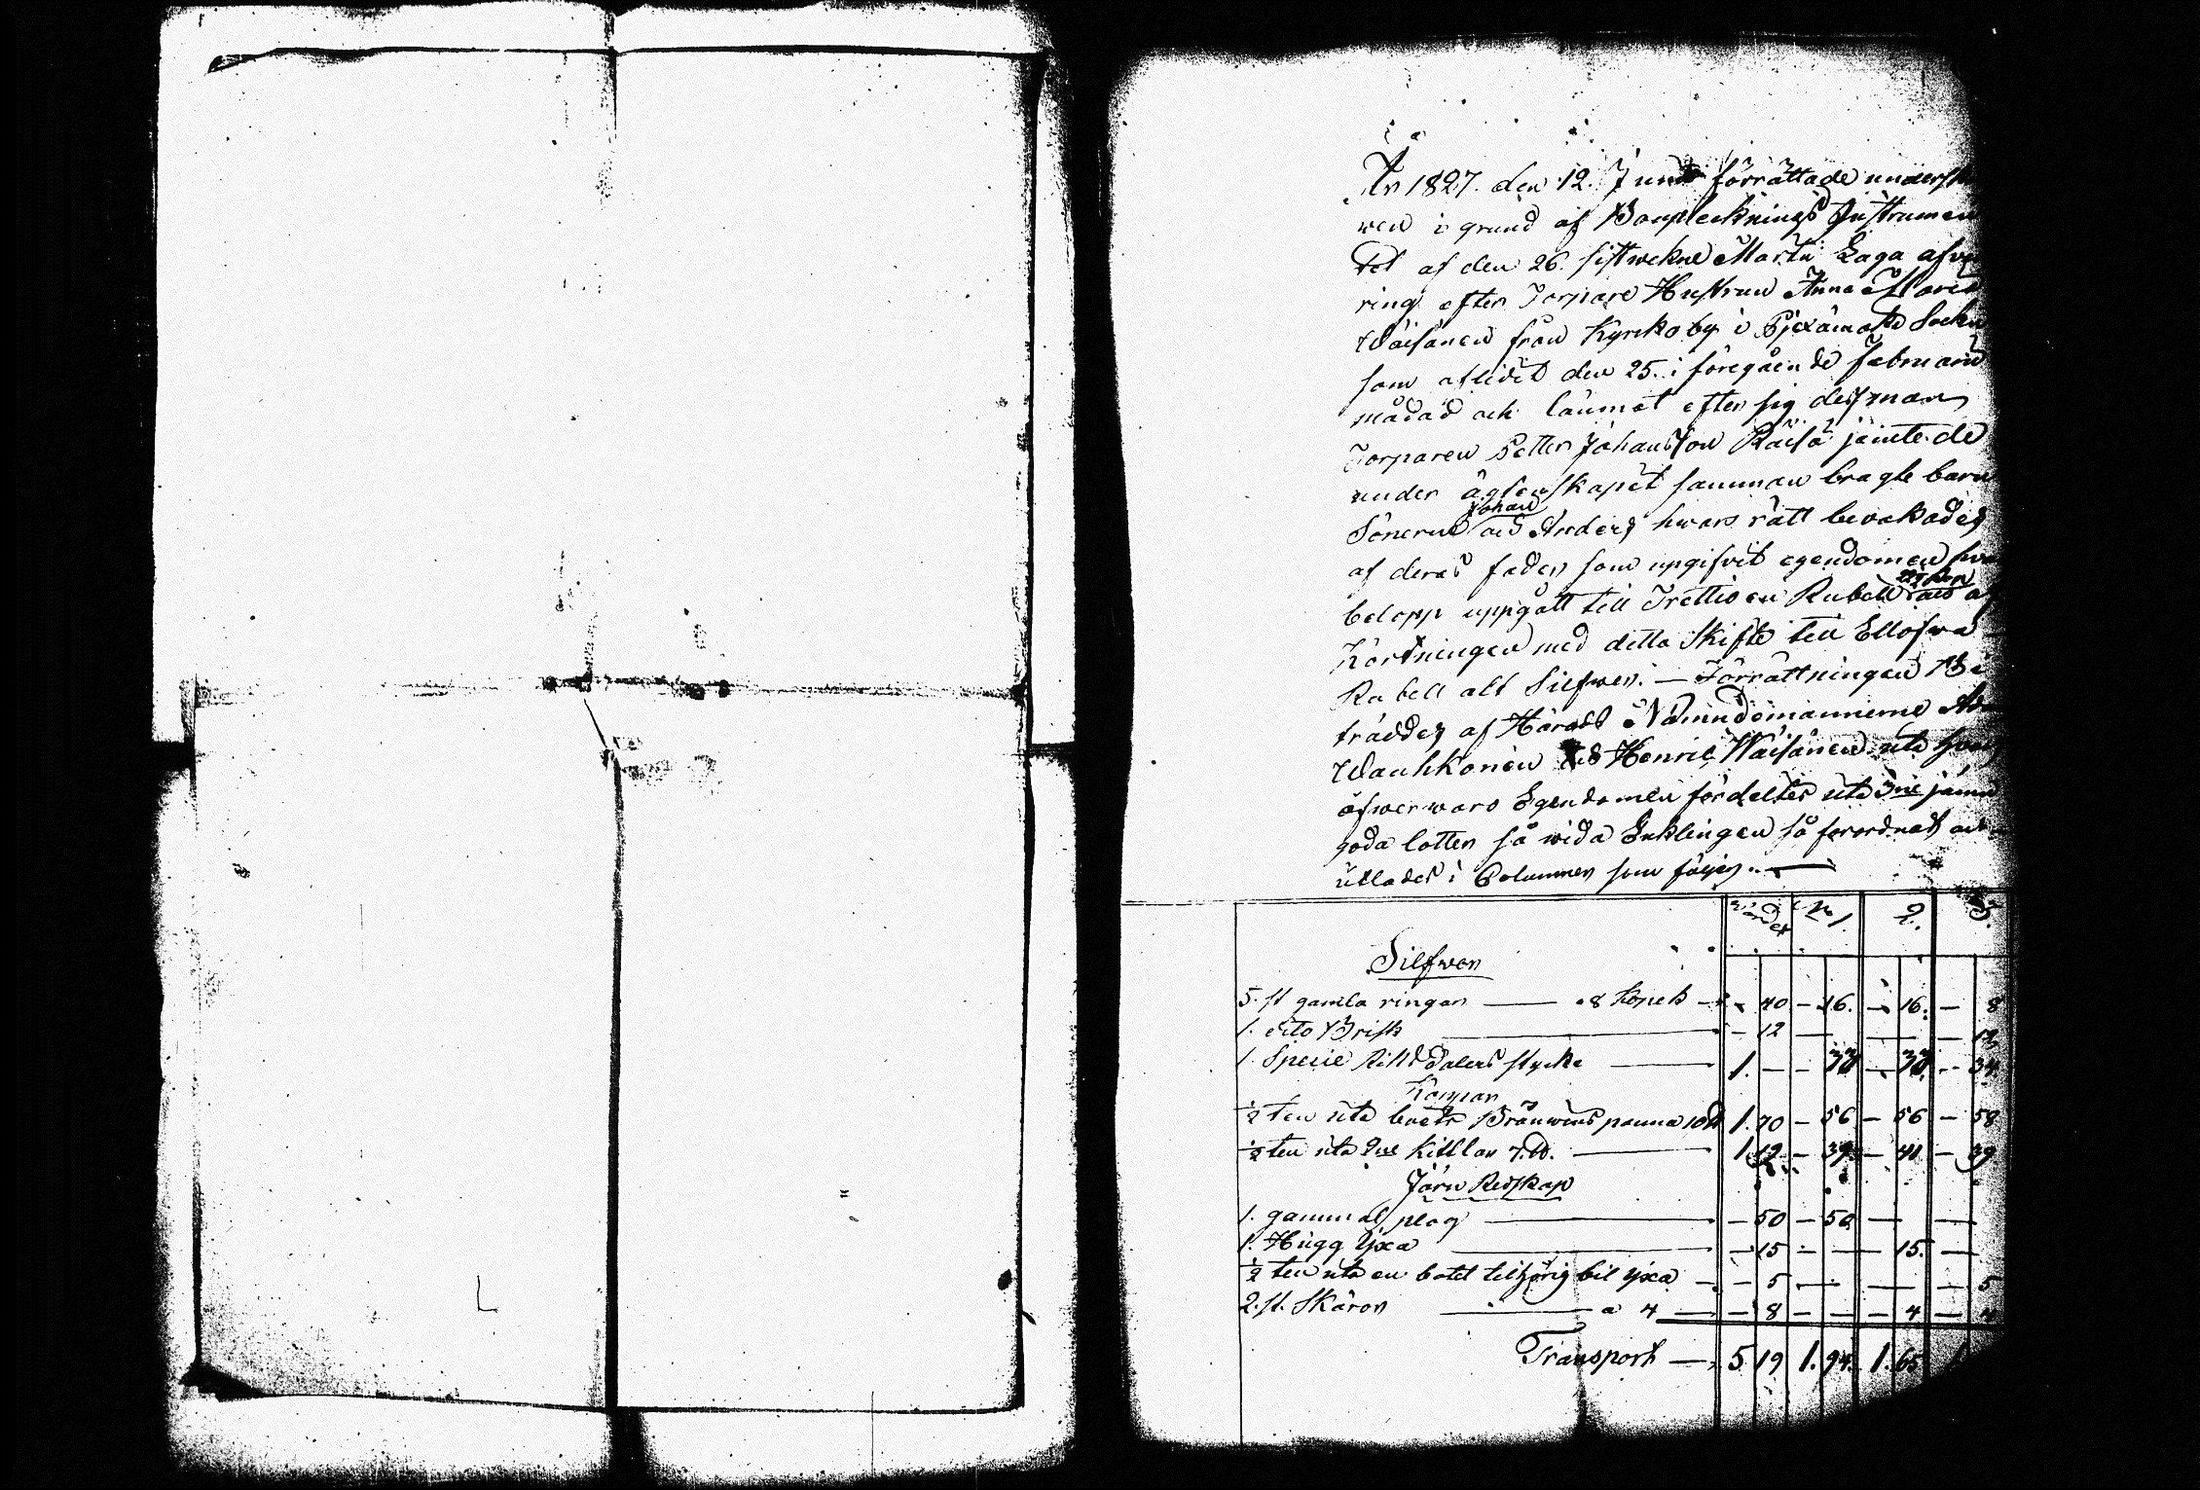 År 1827. den 12. Juni förrättade underskr
ven i grund af Bouptecknings Instrumen
tet af den 26. sistwekne Martii Laga afvi
ring efter Torpare Hustrun Anna Maria
Wäisänen från Kyrckoby i Pjexämäki Sockn
som aflidit den 25. i föregående Februarii
månad och lämnat efter sig dess man
Torparen Petter Johansson Räisä jämte de
under ägtenskapet samman bragte barn
Sönerne Johan och Anders hwars rätt bevakades
af deras fader som upgifvit egendomen hva
belopp uppgått till Trettio en Rubell och af
Kortningen med detta Skifte till Ellofva
Rubell alt Silfwer. — Förrättningen Bi
träddes af Härads Nämndemännerne A
Wauhkonen och Henric Wäisänen uta
öfwerwaro Egendomen fördeltes uta 3ne jämn
goda lotter så wida Enklingen så förordnat och
utlades i Columner som följer. —
Wärdet N 1. 2. 3.
Silfwer
5. st gamla ringar — a 8 Kopek — 40 — 16. — 16. — 8
1. dito Brisk — 12 — — 12
1. Specie Riksdalers stycke — 1. — — 33 — 33 — 34
Koppar
1/2 ten uta bortr Bränwins panna 10 1. 70 — 56 — 56 — 58
1/2 ten uta 2ne Kittlar 7. — 1. 19 — 39 — 41 — 39
Järn Redskap
1. gammal plog — 50 — 50 — —
1. Hugg Yxa — 15 — — 15. —
1/2 ten uta en botel tilhörig bil yxa — 5 — — 5
2. st. Skäror — a 4 — 8 — — 4 — 4
Transport — 5 19 1. 94. 1. 65 1